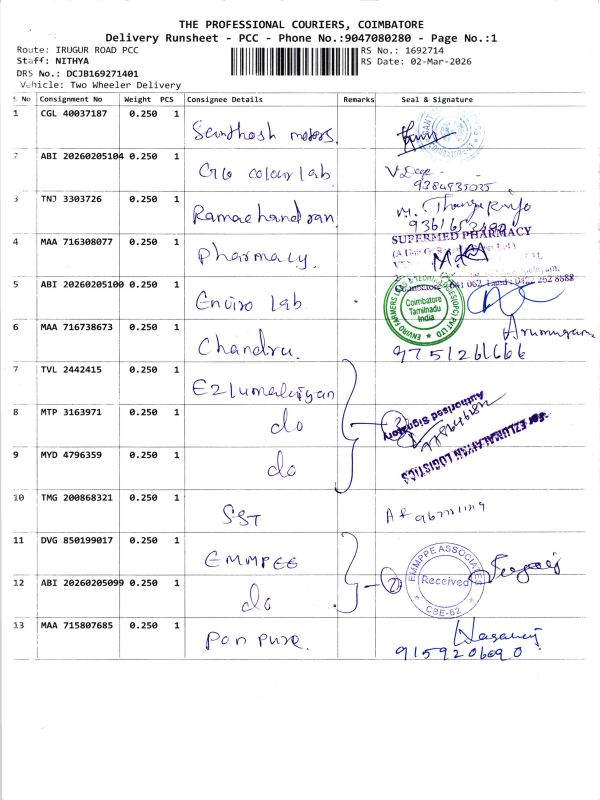 THE PROFESSIONAL COURIERS, COIMBATORE
Delivery Runsheet - PCC - Phone No.:9047080280 - Page No.:1
Route: IRUGUR ROAD PCC
RS No.: 1692714
Staff: NITHYA
RS Date: 02-Mar-2026
DRS No.: DCJB169271401
Vehicle: Two Wheeler Delivery
S No Consignment No Weight PCS Consignee Details Remarks Seal & Signature
1 CGL 40037187 0.250 1 Santhosh motors.
2 ABI 20260205104 0.250 1 Cr16 colour lab
9384935025
3 TNJ 3303726 0.250 1 Ramachandran.
M.
4 MAA 716308077 0.250 1 Pharmacy.
SUPERMED PHARMACY
0422 262 8688
5 ABI 20260205100 0.250 1 Enviro lab
Coimbatore
Tamilnadu
India
6 MAA 716738673 0.250 1 Chandru.
Arumugam
9751261666
7 TVL 2442415 0.250 1 Ezlumalaiyan
8 MTP 3163971 0.250 1 do
Authorised Signatory
For EZLUMALAYAN LOGISTICS
9 MYD 4796359 0.250 1 do
10 TMG 200868321 0.250 1 SST
11 DVG 850199017 0.250 1 EMMPEE
EMMPPE ASSOCIATES
Received
CBE-62
12 ABI 20260205099 0.250 1 do
2
13 MAA 715807685 0.250 1 Pon pure.
9159206090